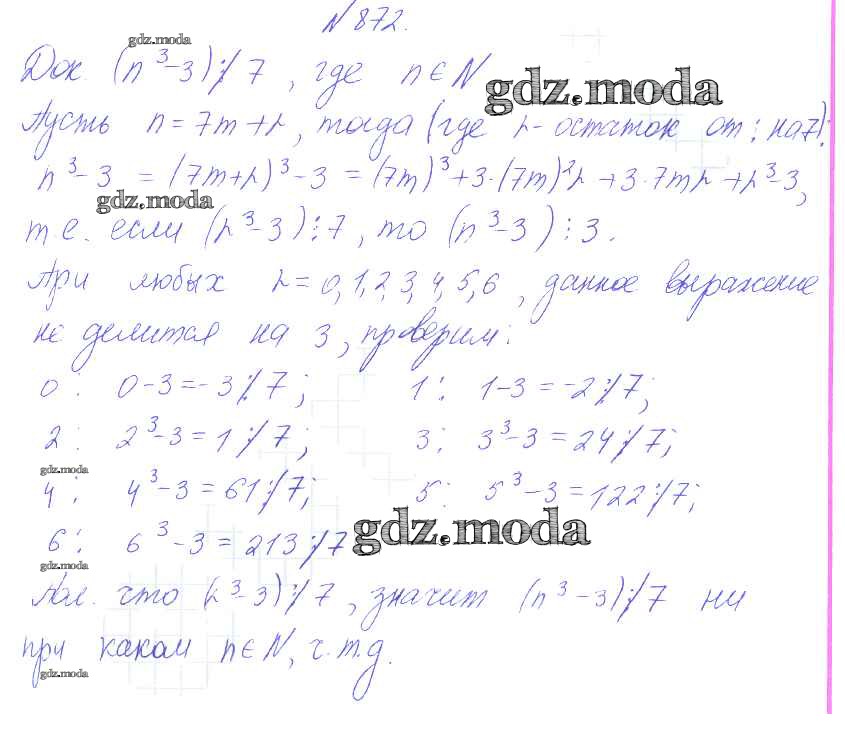 №872.
gdz.moda
Док. (n³-3)⋮̸7, где n∈N
gdz.moda
Пусть n=7m+r, тогда (где r-остаток от : на 7):
n³-3 = (7m+r)³-3 = (7m)³+3·(7m)²r+3·7mr+r³-3,
gdz.moda
т.е. если (r³-3)⋮7, то (n³-3)⋮3.
При любых r=0,1,2,3,4,5,6, данное выражение
не делится на 3, проверим:
0: 0-3=-3⋮̸7; 1: 1-3=-2⋮̸7;
2: 2³-3=1⋮̸7; 3: 3³-3=24⋮̸7;
gdz.moda
4: 4³-3=61⋮̸7; 5: 5³-3=122⋮̸7;
6: 6³-3=213⋮̸7
gdz.moda
gdz.moda
Пол. что (r³-3)⋮̸7, значит (n³-3)⋮̸7 ни
при каком n∈N, ч.т.д.
gdz.moda